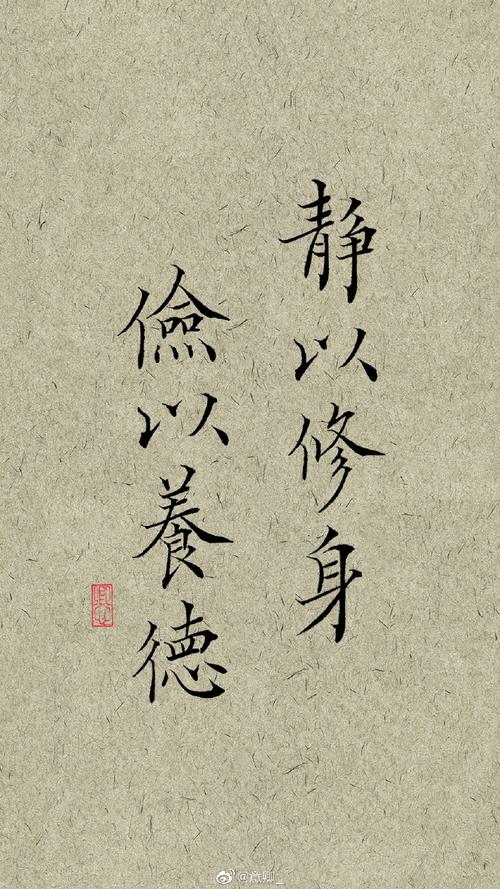 静以修身
儉以養德
@意卿_